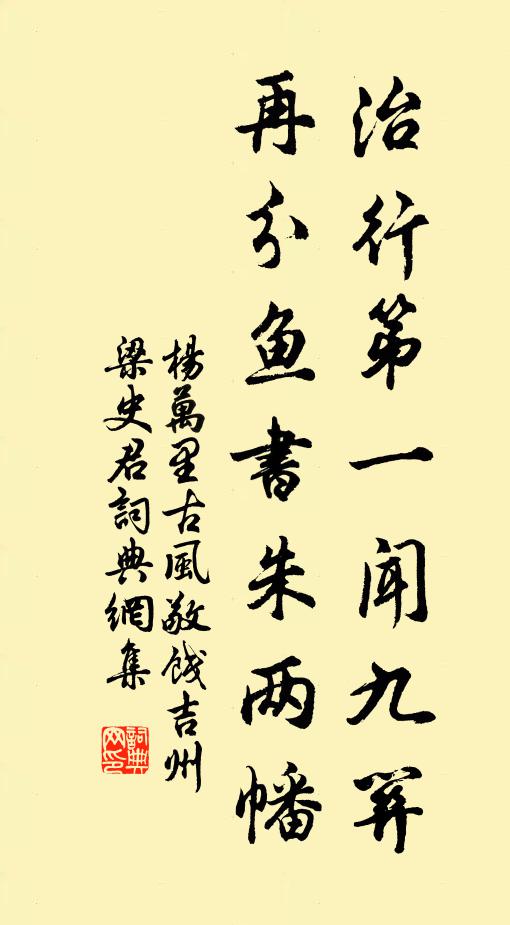 治行第一闻九
再分鱼書朱两幡
楊萬里古風敬饯吉州
梁史君詞典網集
詞典
网印